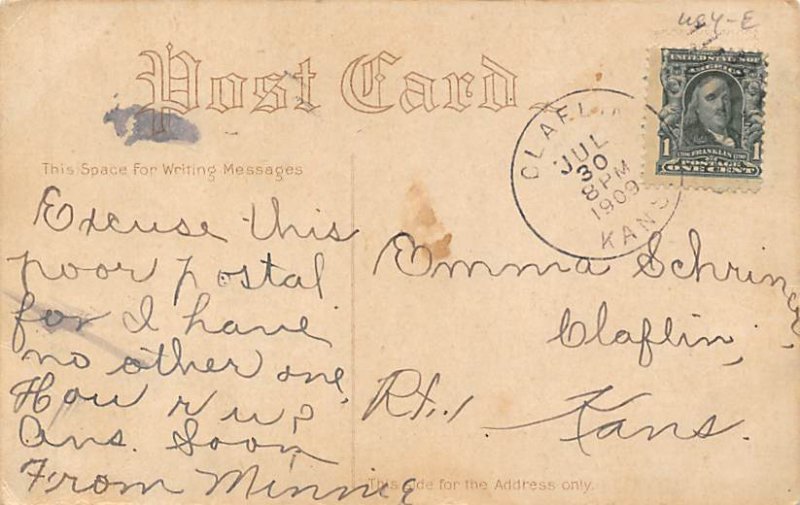 Post Card
This Space for Writing Messages
Excuse this
poor postal
for I have
no other one.
How r u?
Ans. Soon
From Minnie
CLAFLIN
JUL
30
8 PM
1909
KANS
UNITED STATES OF
AMERICA
1 FRANKLIN 1
POSTAGE
ONE CENT
Emma Schriner,
Claflin,
Rt. 1
Kans.
This Side for the Address only.